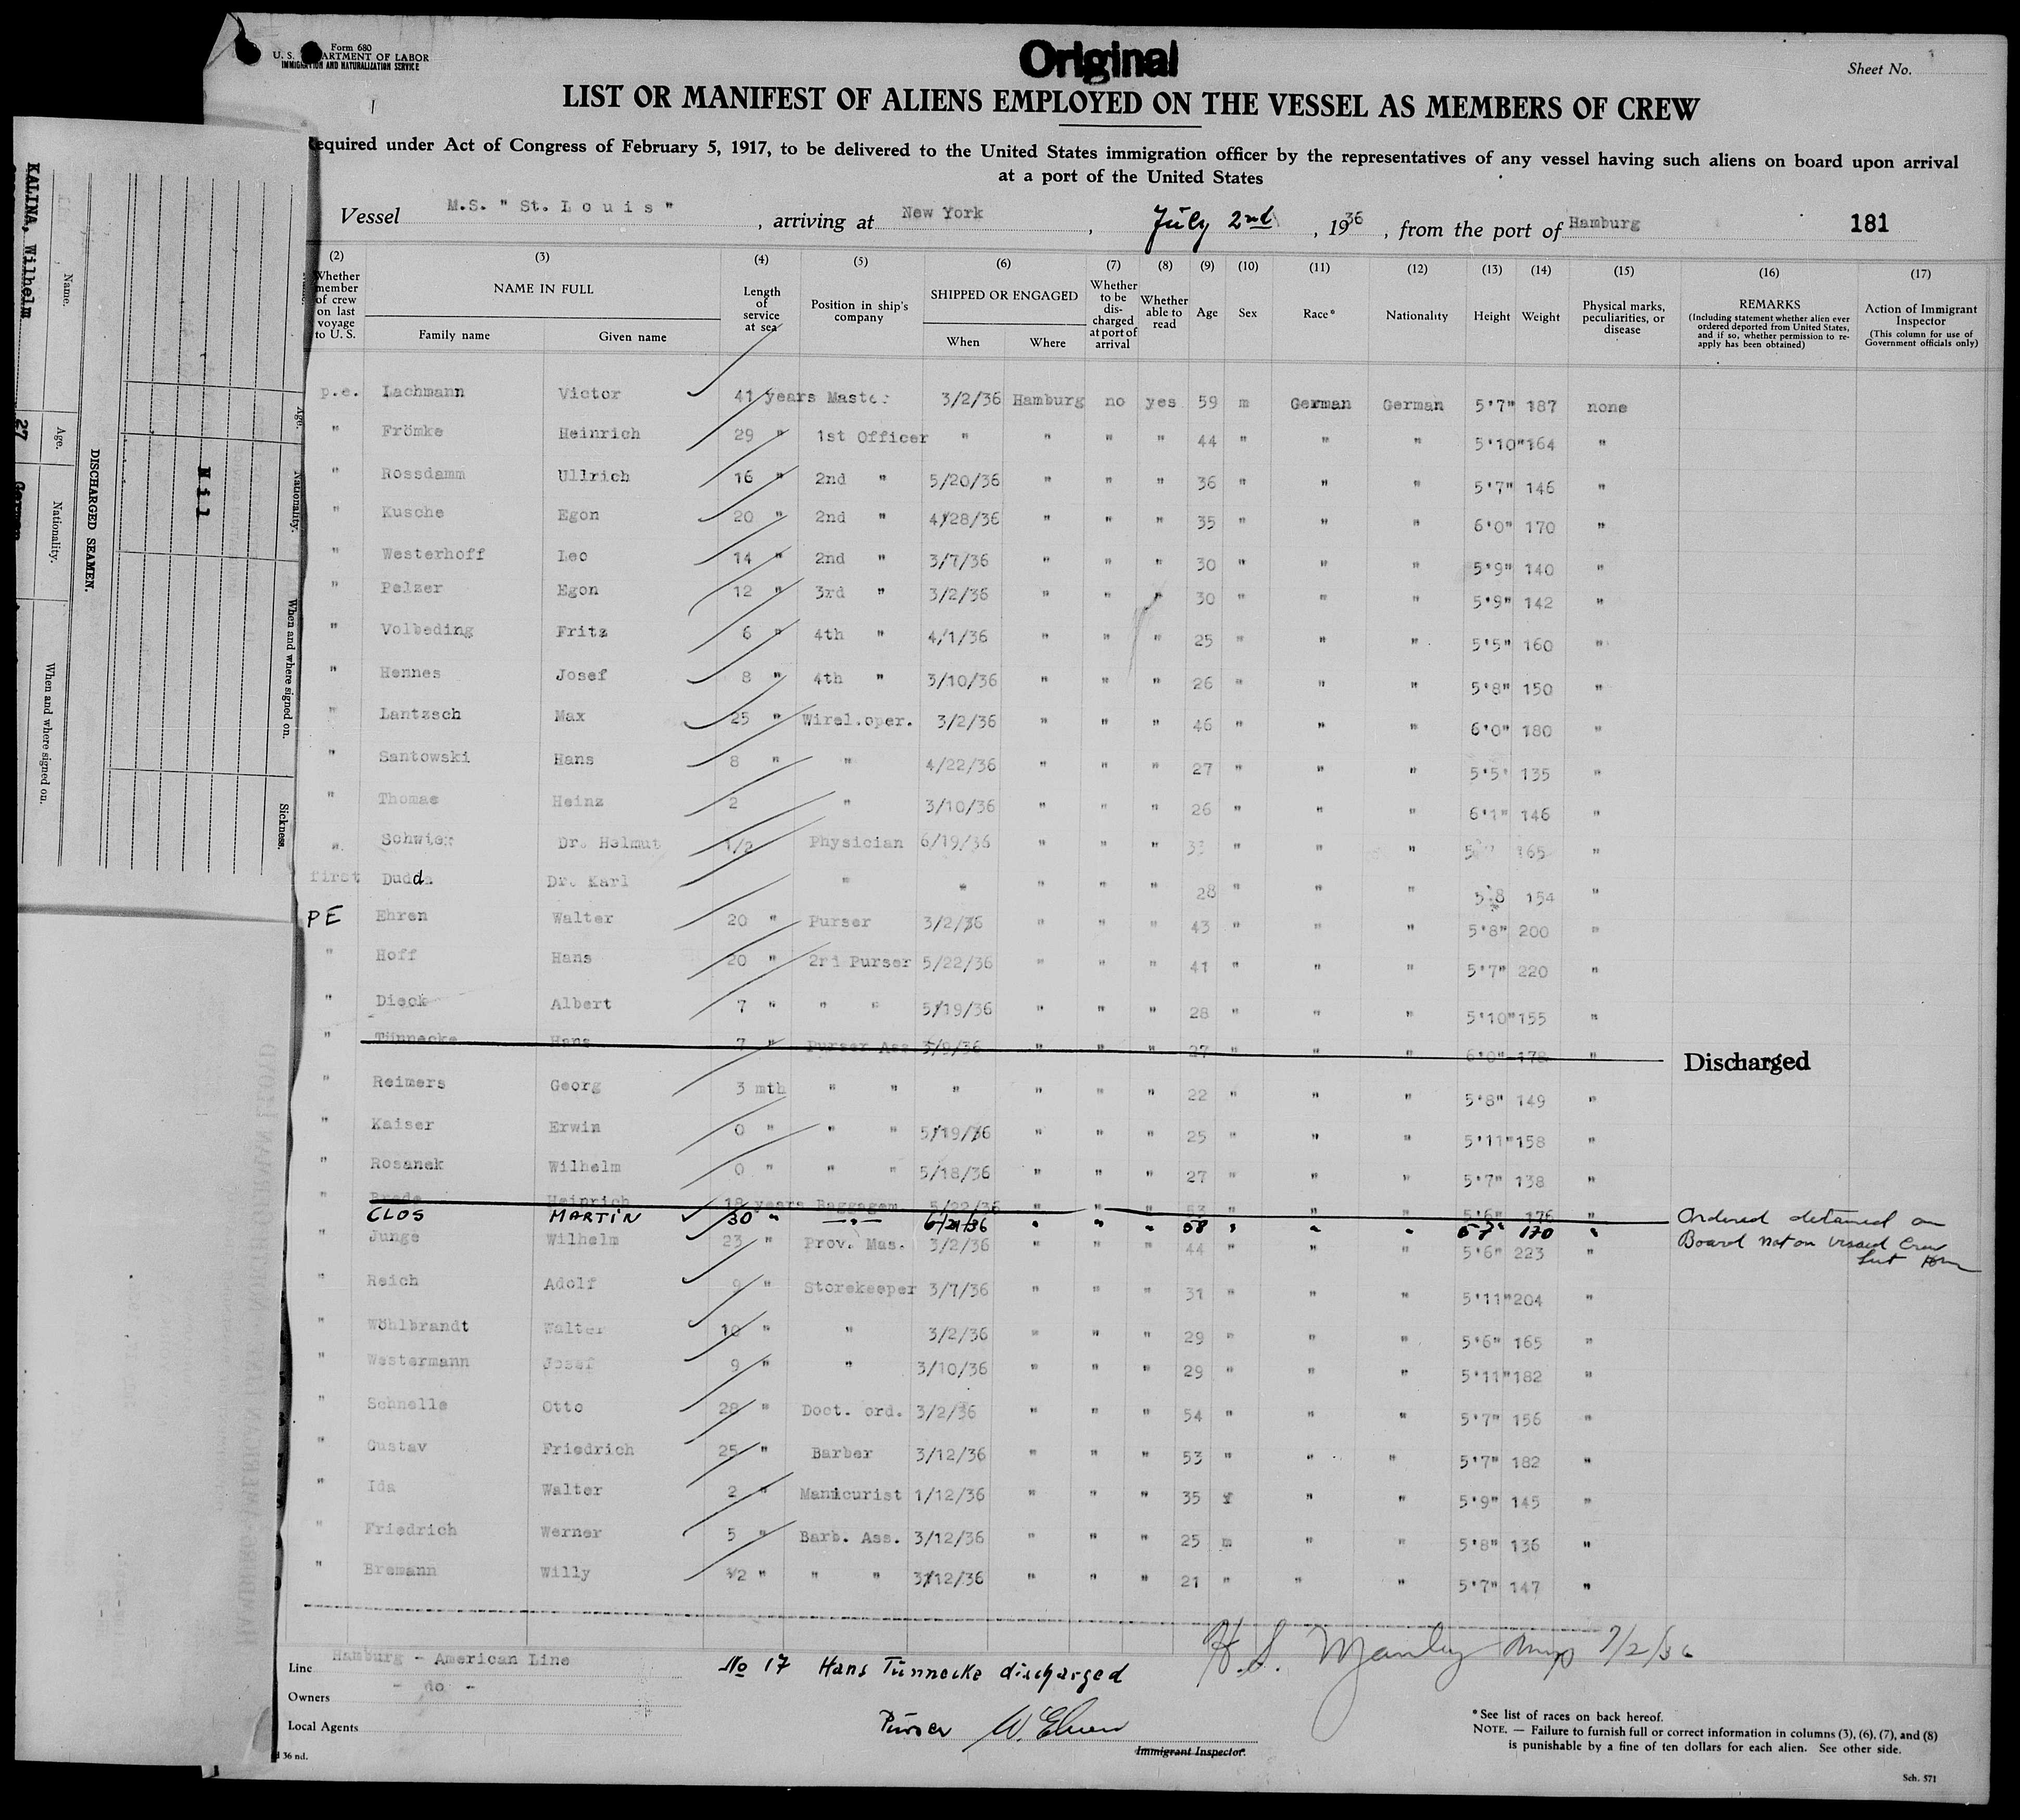 Form 680
U. S. DEPARTMENT OF LABOR
IMMIGRATION AND NATURALIZATION SERVICE
Original
Sheet No.
LIST OR MANIFEST OF ALIENS EMPLOYED ON THE VESSEL AS MEMBERS OF CREW
equired under Act of Congress of February 5, 1917, to be delivered to the United States immigration officer by the representatives of any vessel having such aliens on board upon arrival
at a port of the United States
Vessel M.S. " St. Louis " , arriving at New York , July 2nd , 1936 , from the port of Hamburg 181
(2) Whether member of crew on last voyage to U. S. (3) NAME IN FULL Family name Given name (4) Length of service at sea (5) Position in ship's company (6) SHIPPED OR ENGAGED When Where (7) Whether to be discharged at port of arrival (8) Whether able to read (9) Age (10) Sex (11) Race* (12) Nationality (13) Height (14) Weight (15) Physical marks, peculiarities, or disease (16) REMARKS (Including statement whether alien ever ordered deported from United States, and if so, whether permission to re-apply has been obtained) (17) Action of Immigrant Inspector (This column for use of Government officials only)
p.e. Lachmann Victor 41 years Master 3/2/36 Hamburg no yes 59 m German German 5'7" 187 none
" Frömke Heinrich 29 " 1st Officer " " " " 44 " " " 5'10" 164 "
" Rossdamm Ullrich 16 " 2nd " 5/20/36 " " " 36 " " " 5'7" 146 "
" Kusche Egon 20 " 2nd " 4/28/36 " " " 35 " " " 6'0" 170 "
" Westerhoff Leo 14 " 2nd " 3/7/36 " " " 30 " " " 5'9" 140 "
" Pelzer Egon 12 " 3rd " 3/2/36 " " " 30 " " " 5'9" 142 "
" Volbeding Fritz 6 " 4th " 4/1/36 " " " 25 " " " 5'5" 160 "
" Hennes Josef 8 " 4th " 3/10/36 " " " 26 " " " 5'8" 150 "
" Lantzsch Max 25 " Wirel.oper. 3/2/36 " " " 46 " " " 6'0" 180 "
" Santowski Hans 8 " " 4/22/36 " " " 27 " " " 5'5" 135 "
" Thomas Heinz 2 " 3/10/36 " " " 26 " " " 6'1" 146 "
" Schwier Dr. Helmut 1/2 Physician 6/19/36 " " " 33 " " " 165 "
first Dudda Dr. Karl " " " " " 28 " " " 5'8 154 "
PE Ehren Walter 20 " Purser 3/2/36 " " " 43 " " " 5'8" 200 "
" Hoff Hans 20 " 2nd Purser 5/22/36 " " " 41 " " " 5'7" 220 "
" Dieck Albert 7 " " " 5/19/36 " " " 28 " " " 5'10" 155 "
" Tünnecke Hans 7 " Purser Ass 3/9/36 " " " 27 " " " 6'0" 178 " Discharged
" Reimers Georg 3 mth " " " " " " 22 " " " 5'8" 149 "
" Kaiser Erwin 0 " " " 5/19/36 " " " 25 " " " 5'11" 158 "
" Rosanek Wilhelm 0 " " " 5/18/36 " " " 27 " " " 5'7" 138 "
" Brede Heinrich 18 years Baggagem. 5/22/36 " " " 53 " " " 5'6" 176 "
CLOS MARTIN 30 " -"- 6/21/36 " " " 58 " " " 5'7" 170 " Ordered detained on
Board not on visaed Crew
List
" Junge Wilhelm 23 " Prov. Mas. 3/2/36 " " " 44 " " " 5'6" 223 "
" Reich Adolf 9 " Storekeeper 3/7/36 " " " 31 " " " 5'11" 204 "
" Wöhlbrandt Walter 10 " " 3/2/36 " " " 29 " " " 5'6" 165 "
" Westermann Josef 9 " " 3/10/36 " " " 29 " " " 5'11" 182 "
" Schnelle Otto 28 " Doct. ord. 3/2/36 " " " 54 " " " 5'7" 156 "
" Gustav Friedrich 25 " Barber 3/12/36 " " " 53 " " " 5'7" 182 "
" Ida Walter 2 " Manicurist 1/12/36 " " " 35 f " " 5'9" 145 "
" Friedrich Werner 5 " Barb. Ass. 3/12/36 " " " 25 m " " 5'8" 136 "
" Bremann Willy 1/2 " " " 3/12/36 " " " 21 " " " 5'7" 147 "
Line Hamburg - American Line
Owners - do -
Local Agents
No 17 Hans Tünnecke discharged
H. S. Manley 7/2/36
Purser W. Ehren
Immigrant Inspector.
*See list of races on back hereof.
NOTE. — Failure to furnish full or correct information in columns (3), (6), (7), and (8)
is punishable by a fine of ten dollars for each alien. See other side.
36 nd.
Sch. 571
KALINA, Wilhelm 27
Name. Age. Nationality. When and where signed on.
DISCHARGED SEAMEN.
Nil
Age. Nationality. When and where signed on. Sickness.